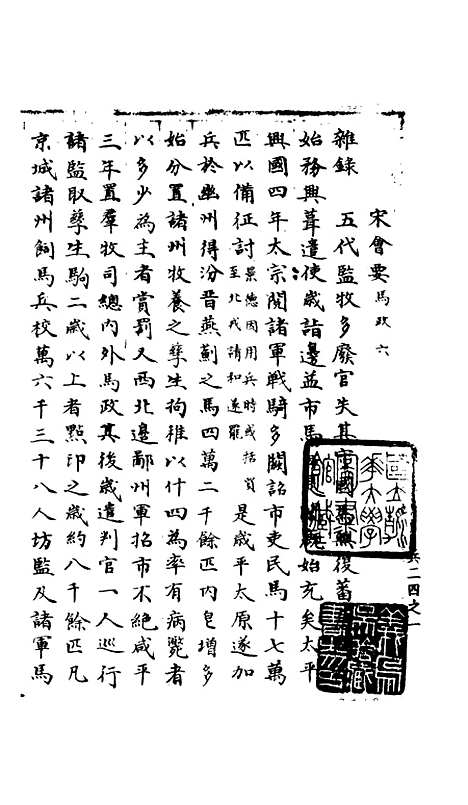 宋會要 馬政六
雜錄 五代監牧多廢官失其守國馬復蓄
始務興葺遣使歲詣邊益市馬始充矣太平
興國四年太宗閱諸軍戰騎多闕詔市吏民馬十七萬
匹以備征討景德因用兵時或括買至北戎請和遂罷是歲平太原遂加
兵於幽州得汾晉燕薊之馬四萬二千餘匹內皂增多
始分置諸州牧養之孳生狗稚以什四為率有病斃者
以多少為主者賞罰又西北邊鄜州軍招市不絕咸平
三年置羣牧司總內外馬政其後歲遣判官一人巡行
諸監取孳生駒二歲以上者點印之歲約八千餘匹凡
京城諸州飼馬兵校萬六千三十八人坊監及諸軍馬
兵二四之一